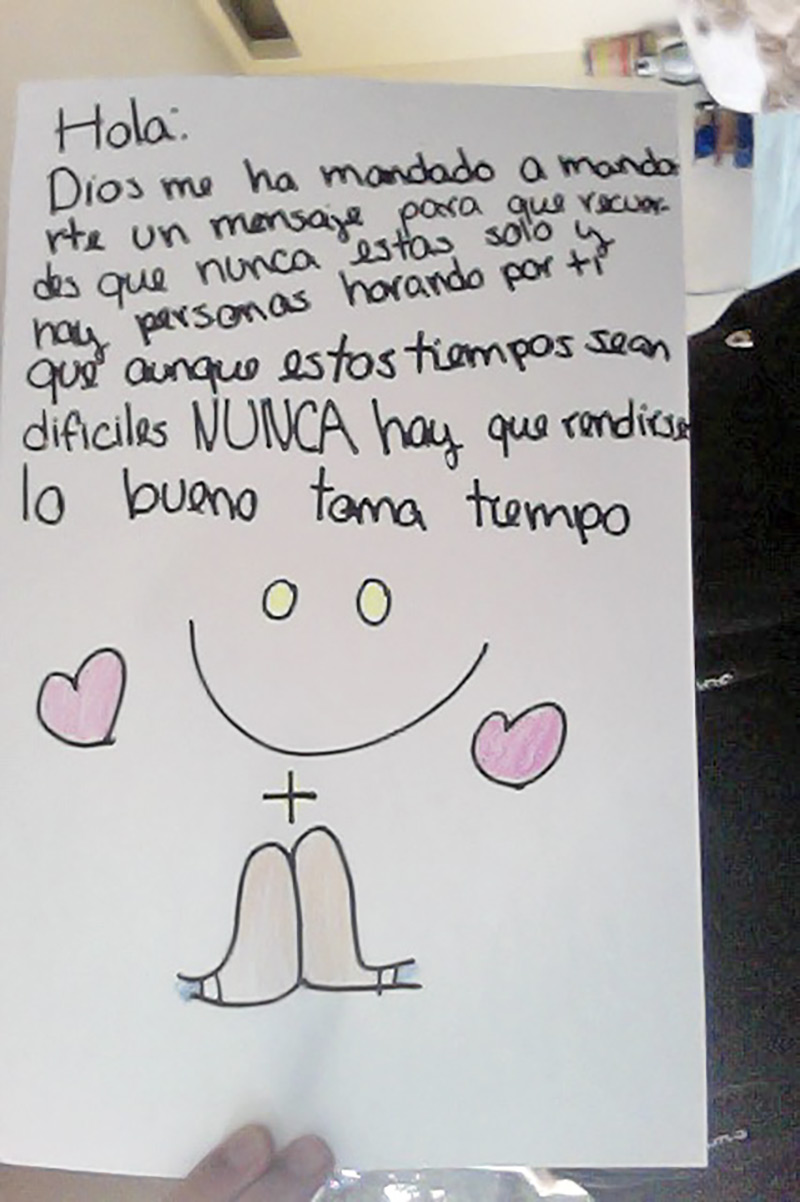 Hola:
Dios me ha mandado a manda
rte un mensaje para que recuer-
des que nunca estas solo y
hay personas horando por ti
que aunque estos tiempos sean
dificiles NUNCA hay que rendirse
lo bueno toma tiempo